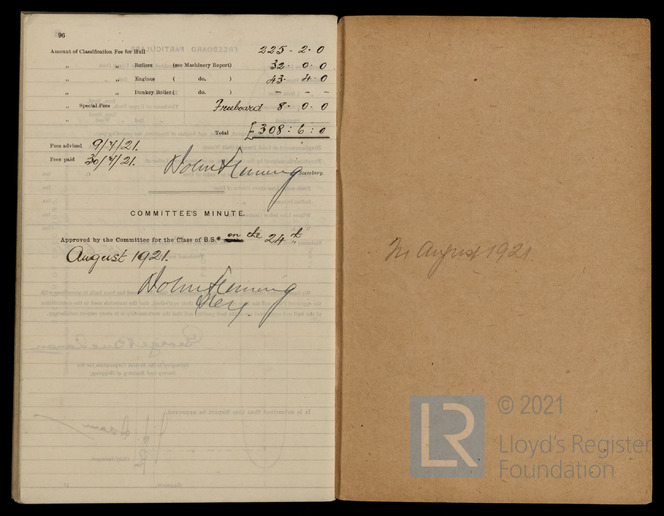 96
Amount of Classification Fee for Hull 225 - 2 - 0
„ „ Boilers (see Machinery Report) 32 . 0 . 0
„ „ Engines ( do. ) 43 . 4 . 0
„ „ Donkey Boiler ( do. ) - - -
„ Special Fees Freeboard 8 . 0 . 0
Total £308 : 6 : 0
Fees advised 9/7/21.
Fees paid 30/7/21.
Secretary.
COMMITTEE'S MINUTE.
Approved by the Committee for the Class of B.S.* on the 24th
August 1921.
Secy.
August 1921
LR
© 2021
Lloyd's Register
Foundation